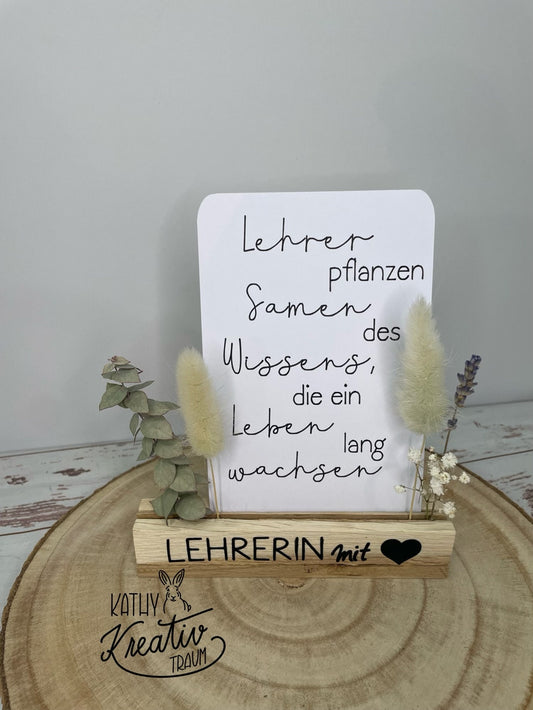 Lehrer
pflanzen
Samen
des
Wissens,
die ein
Leben
lang
wachsen
LEHRERIN mit
KATHY
Kreativ
TRAUM